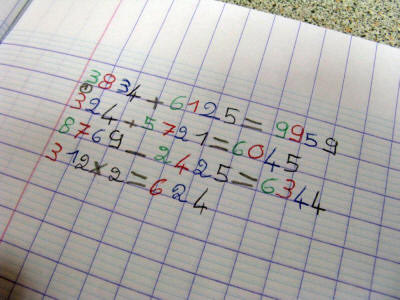 3834+6125=9959
324+5721=6045
8769-2425=6344
312×2=624